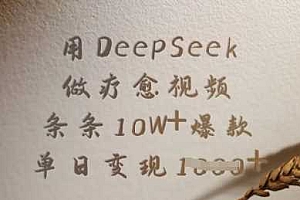 用DeepSeek
做疗愈视频
条条10W+爆款
单日变现1000+